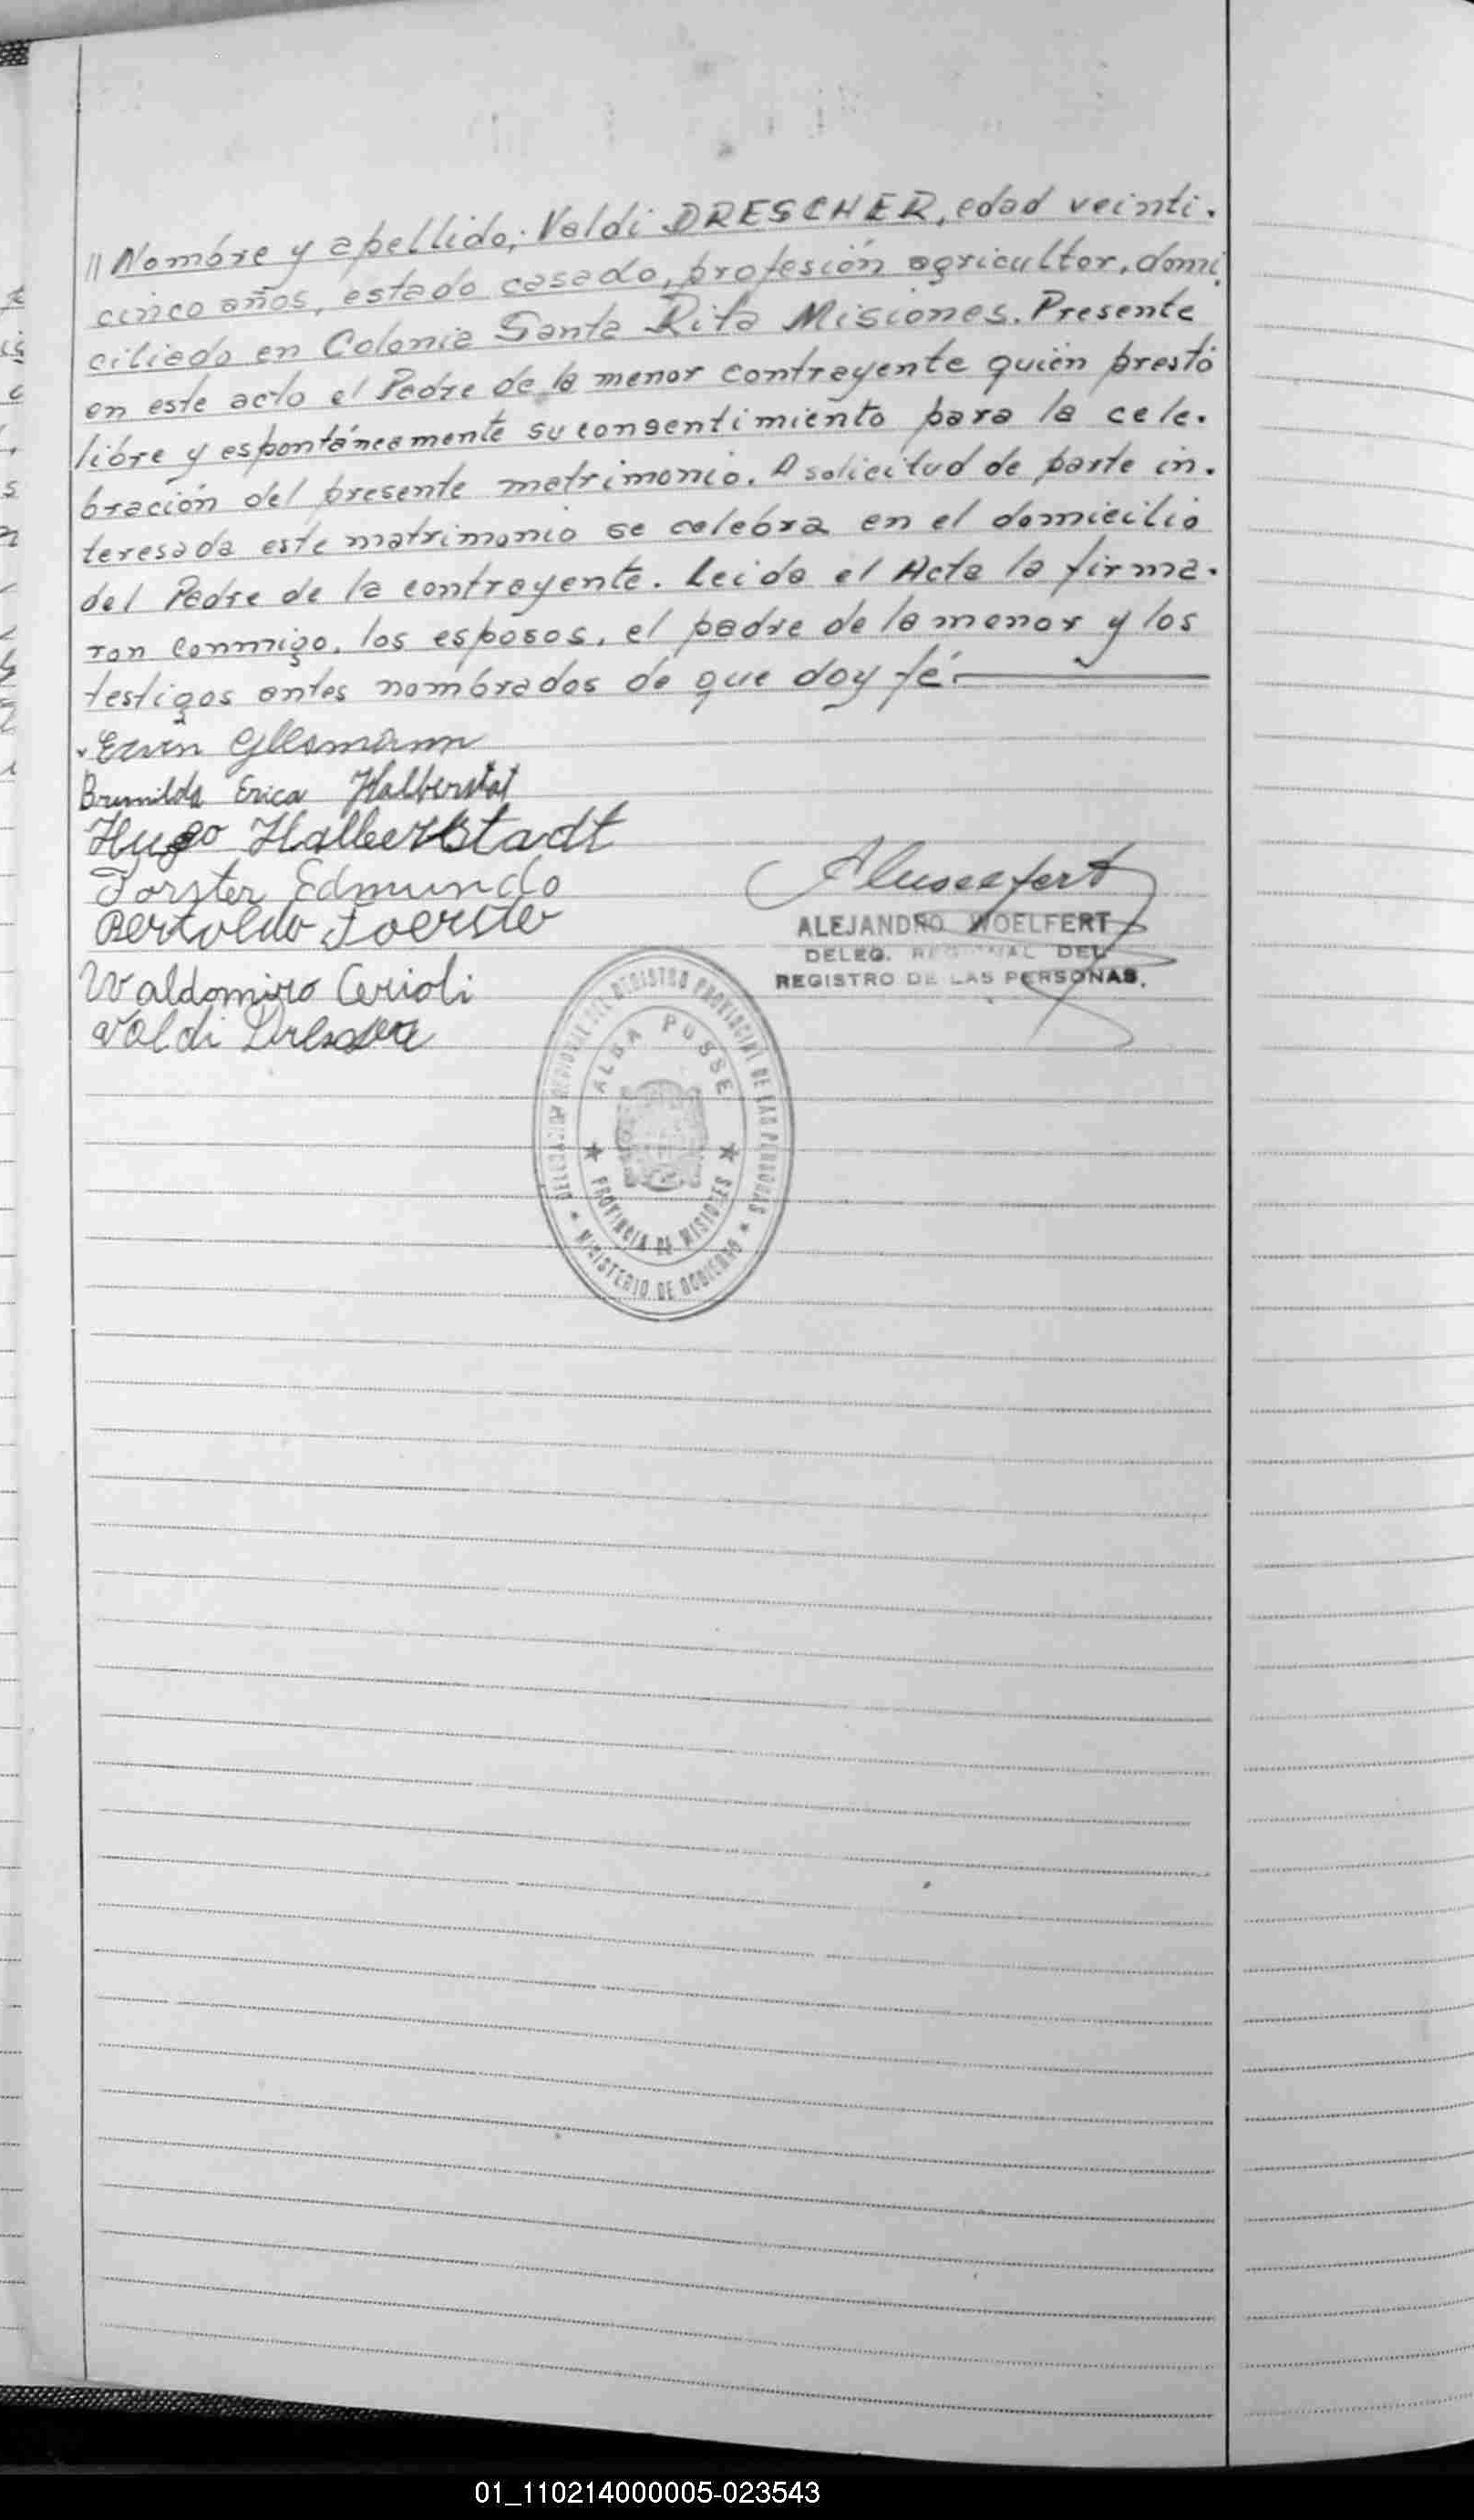 // Nombre y apellido; Valdi DRESCHER, edad veinti-
cinco años, estado casado, profesión agricultor, domi-
ciliado en Colonia Santa Rita Misiones. Presente
en este acto el Padre de la menor contrayente quién prestó
libre y espontáneamente su consentimiento para la cele-
bración del presente matrimonio. A solicitud de parte in-
teresada este matrimonio se celebra en el domicilio
del Padre de la contrayente. Leida el Acta la firma-
ron conmigo, los esposos, el padre de la menor y los
testigos antes nombrados de que doy fé.
Erven Glesmann
Brunilda Erica Halberstat
Hugo Halberstadt
Forster Edmundo
Bertoldo Foerster
Waldomiro Cerioli
Valdi
ALEJANDRO WOELFERT
DELEG. REGIONAL DEL
REGISTRO DE LAS PERSONAS.
DELEGACION REGIONAL DEL REGISTRO PROVINCIAL DE LAS PERSONAS
ALBA POSSE
PROVINCIA DE MISIONES
MINISTERIO DE GOBIERNO
01_110214000005-023543